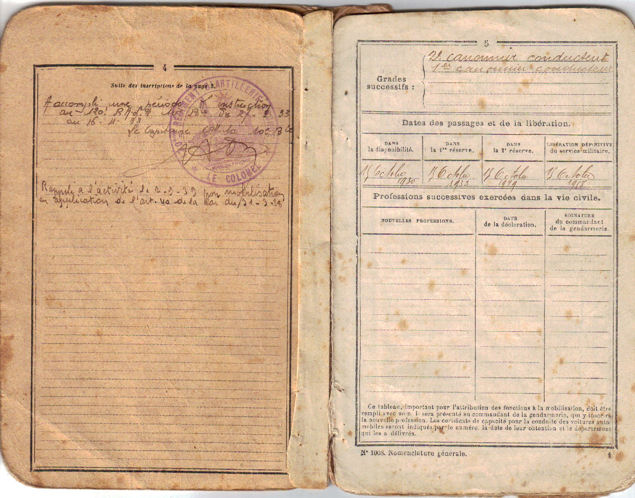 4
Suite des inscriptions de la page 3.
accompli une période d'instruction
au
au 16-11-33
Le Capitaine
RÉGIMENT D'ARTILLERIE
LE COLONEL
Rappelé à l'activité le 2-9-39 par mobilisation
en application de l'art. de la loi du 31-3-28
5
Grades
successifs :
2e canonnier conducteur
1er canonnier conducteur
Dates des passages et de la libération.
DANS
la disponibilité.
DANS
la 1re réserve.
DANS
la 2e réserve.
LIBÉRATION DÉFINITIVE
du service militaire.
Octobre
1930
Octobre
1933
Octobre
Octobre
Professions successives exercées dans la vie civile.
NOUVELLES PROFESSIONS.
DATE
de la déclaration.
SIGNATURE
du commandant
de la gendarmerie.
Ce tableau, important pour l'attribution des fonctions à la mobilisation, doit être
rempli avec soin. Il sera présenté au commandant de la gendarmerie, qui y inscrira
la nouvelle profession. Les certificats de capacité pour la conduite des voitures auto-
mobiles seront indiqués par le numéro, la date de leur obtention et le département
qui les a délivrés.
N° 1008. Nomenclature générale.